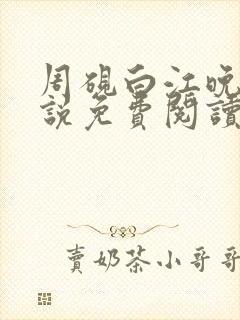 周硯白江晚
說免費閱讀
賣奶茶小哥哥